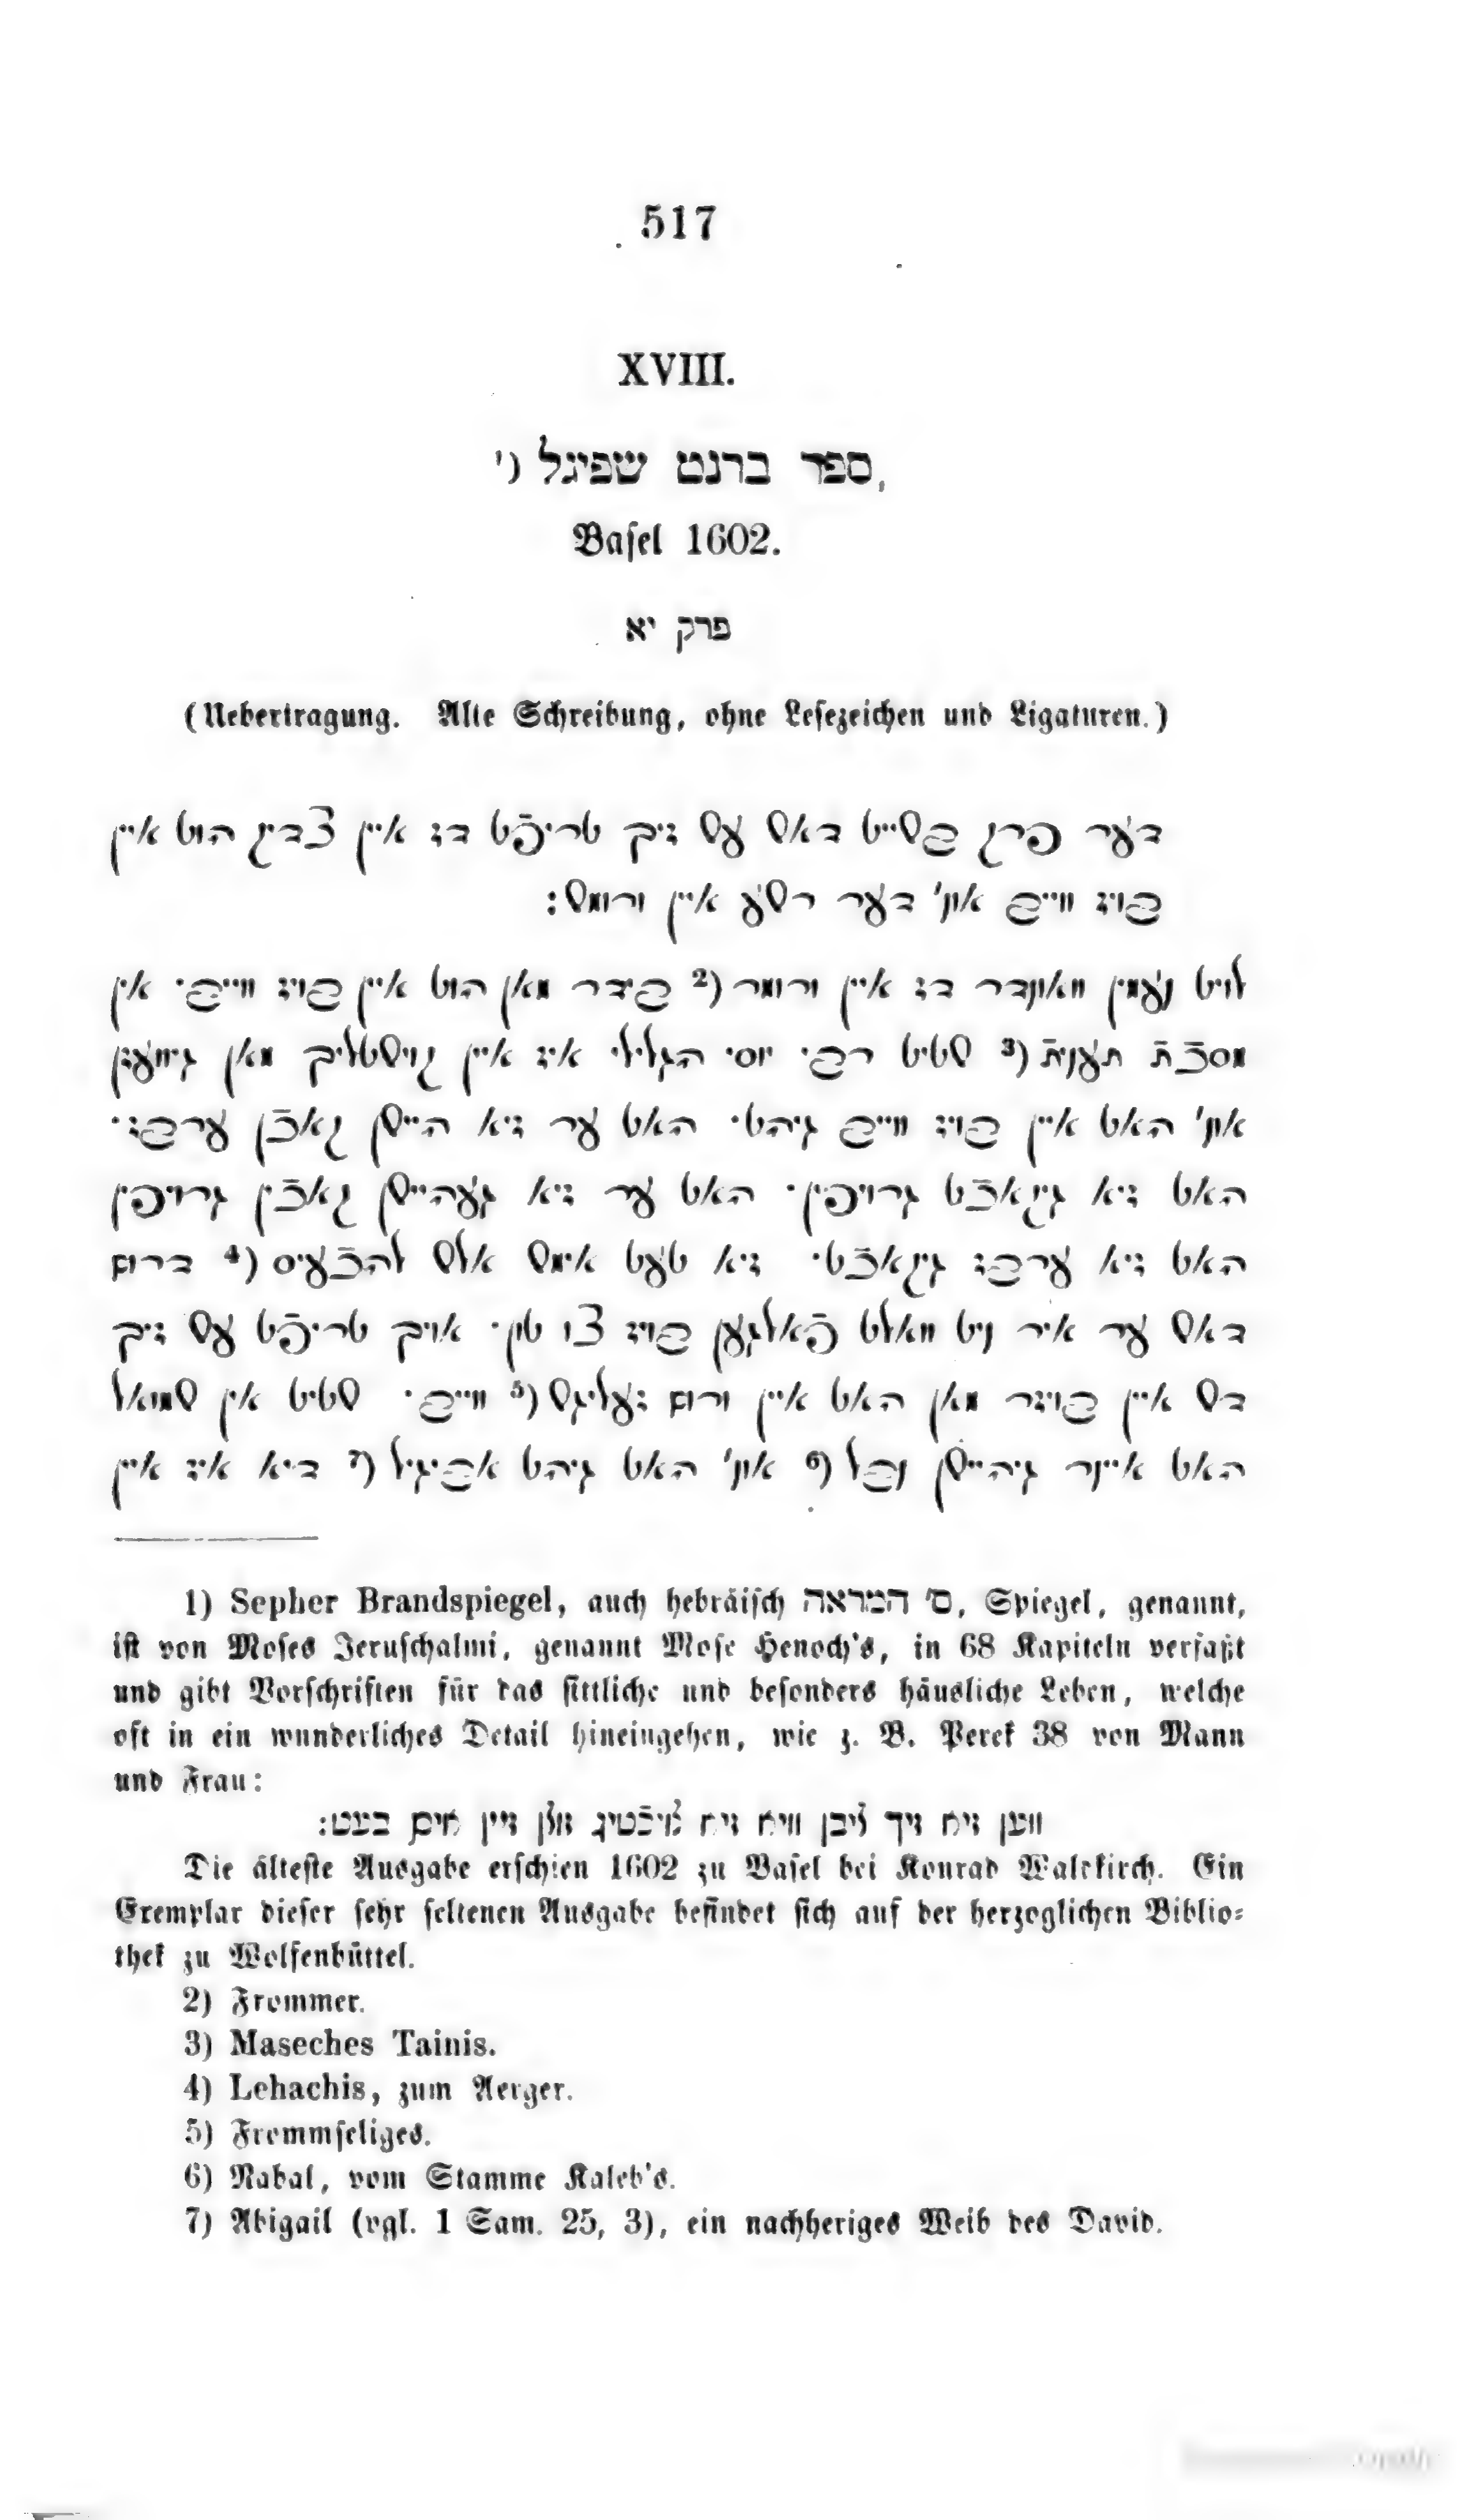 517
XVIII.
ספר ברנט שפיגל (¹
Basel 1602.
פרק יא
(Uebertragung. Alte Schreibung, ohne Lesezeichen und Ligaturen.)
דער פרק בשייט דאש עש זיך טריפֿט דז איין צדיק הוט איין
בויז ווייב אונ' דער רשע איין ורומש:
לויט נעמין וואונדר דז איין ורומר (² בידר מאן הוט איין בויז ווייב· אין
מסכֿת תענית (³ שטיט רבי יוסי הגלילי איז איין קוישטליך מאן גיוועזן
אונ' האט איין בויז ווייב גיהט· האט ער זיא היישן קאכֿן ערבז·
האט זיא גיקאכֿט גרויפין· האט ער זיא געהיישן קאכֿין גרויפין
האט זיא ערבז גיקאכֿט· זיא טעט אימש אלש להכֿעיס (⁴ דרום
דאש ער איר ניט וואלט פֿאלגען בויז צו טון· אויך טריפֿט עש זיך
דש איין בויזר מאן האט איין ורום זעליגש (⁵ ווייב· שטיט אין שמואל
האט איינר גיהיישן נבל (⁶ אונ' האט גיהט אביגיל (⁷ דיא איז איין
1) Sepher Brandspiegel, auch hebräisch ס' המראה, Spiegel, genannt,
ist von Moses Jeruschalmi, genannt Mose Henoch's, in 68 Kapiteln verfaßt
und gibt Vorschriften für das sittliche und besonders häusliche Leben, welche
oft in ein wunderliches Detail hineingehen, wie z. B. Perek 38 von Mann
und Frau:
ווען זיא זיך ליבן וויא זיא לויכֿטיג וולן זיין אים בעט:
Die älteste Ausgabe erschien 1602 zu Basel bei Konrad Walrkirch. Ein
Exemplar dieser sehr seltenen Ausgabe befindet sich auf der herzoglichen Biblio-
thek zu Wolfenbüttel.
2) Frommer.
3) Maseches Tainis.
4) Lehachis, zum Aerger.
5) Frommseliges.
6) Nabal, vom Stamme Kaleb's.
7) Abigail (vgl. 1 Sam. 25, 3), ein nachheriges Weib des David.